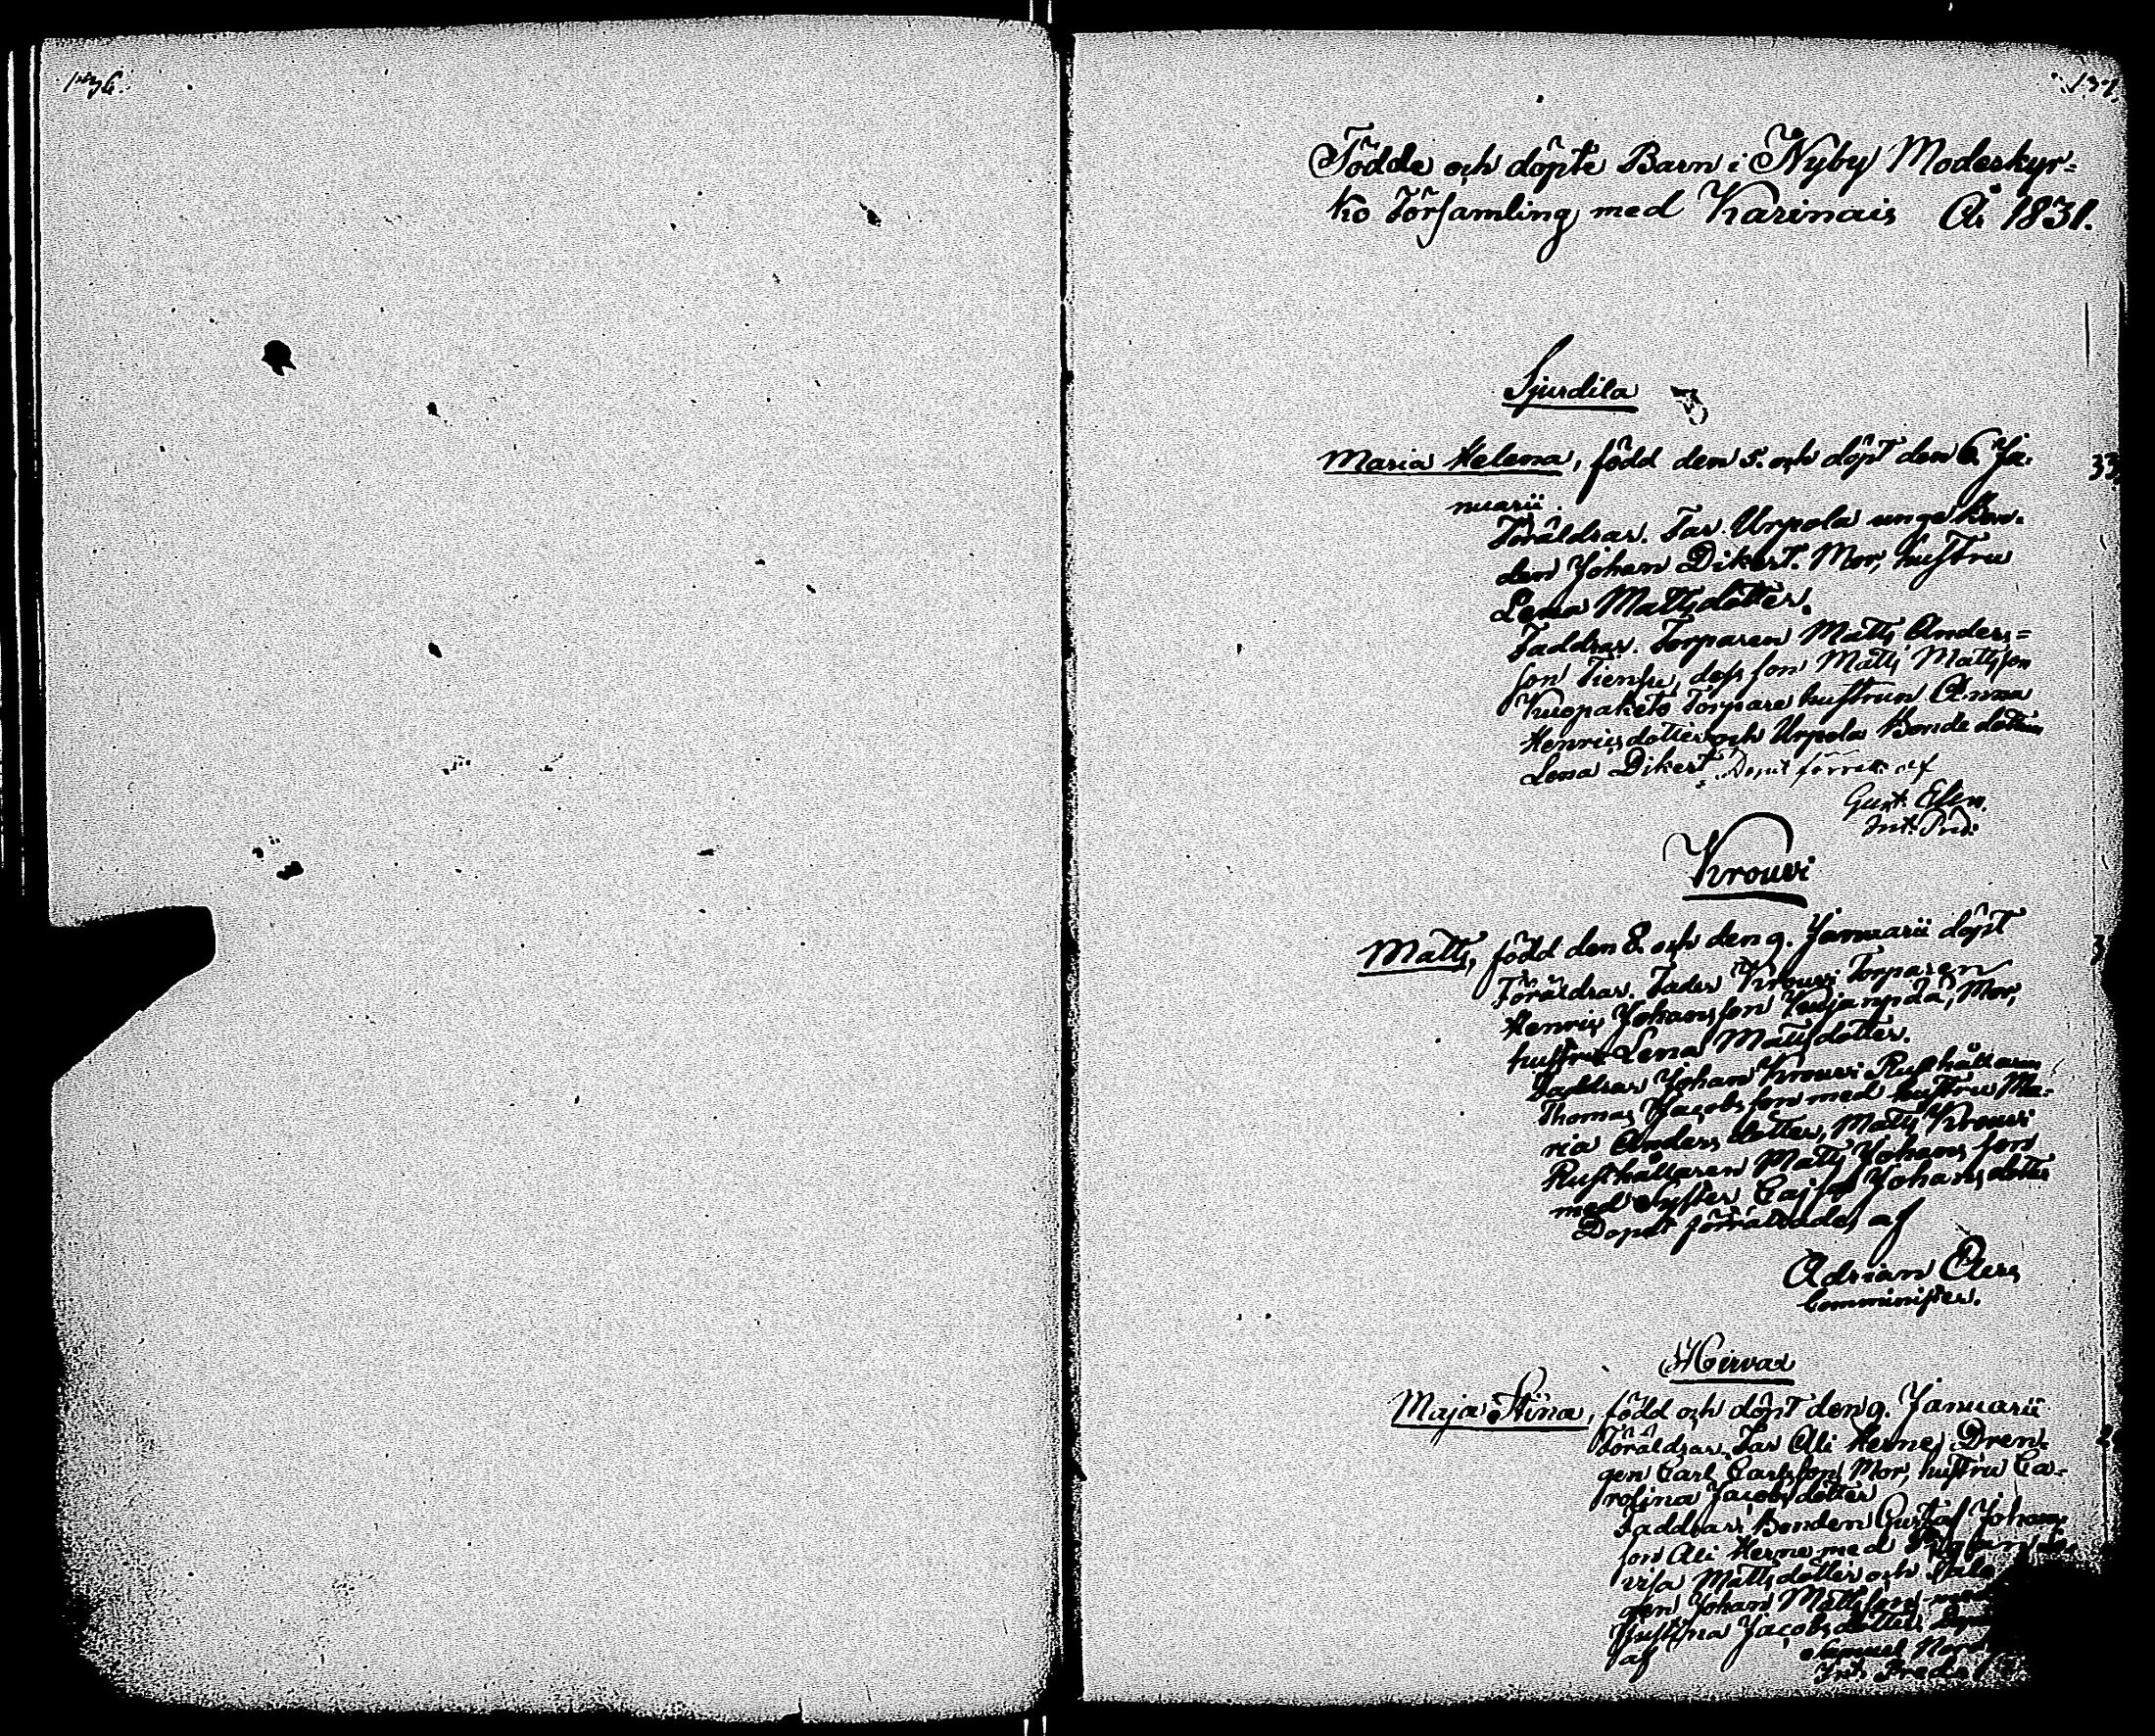 136.
137
Födde och döpte Barn i Nyby Moderkyr-
ko Församling, med Karinais År 1831.
Sjurdila
Maria Helena, född den 5. och döpt den 6. Ja-
33
nuarii.
Föräldrar. Far. Urpola unge Bon-
den Johan Dikert. Mor, hustru
Lena Mattsdotter.
Faddrar. Torparen Matts Anders=
son dess son Matts Mattsson
Kuopaketo Torpare hustrun Anna
Henricsdotter och Urpola Bonde dottern
Lena Dikert. Dopet förrätt. af
Gust.
Krouvi
Matts, född den 8. och den 9. Januarii döpt
3
Föräldrar. Fader Krouvi Torparen
Henric Johansson Mor,
hustru Lena Mattsdotter.
Faddrar Johan Krouvi Rusthållaren
Thomas Jacobsson med hustru Ma-
ria Andersdotter, Matts Krouvi
Rusthållaren Matts Johansson
med Syster Cajsa Johansdotter
Dopet förrättades af
Adrian
Comminister.
Hirvas
Maja Stina, född och döpt den 9. Januarii
2
Föräldrar. Far Ali Herne, Dren-
gen Carl Carlsson, Mor, hustru Ca-
rolina Jacobsdotter
Faddrar, Bonden Gustaf Johans-
son Ali Herne med
visa Mattsdotter och
gen Johan Mattsson
Justina Jacobsdotter,
af Samuel